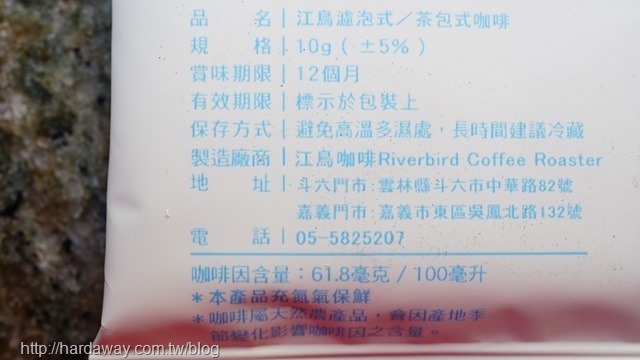 品名｜江鳥濾泡式／茶包式咖啡
規格｜10g（±5%）
賞味期限｜12個月
有效期限｜標示於包裝上
保存方式｜避免高溫多濕處，長時間建議冷藏
製造廠商｜江鳥咖啡Riverbird Coffee Roaster
地址｜斗六門市:雲林縣斗六市中華路82號
嘉義門市:嘉義市東區吳鳳北路132號
電話｜05-5825207
咖啡因含量：61.8毫克 / 100毫升
＊本產品充氮氣保鮮
＊咖啡屬天然農產品，會因產地季
節變化影響咖啡因之含量。
http://hardaway.com.tw/blog